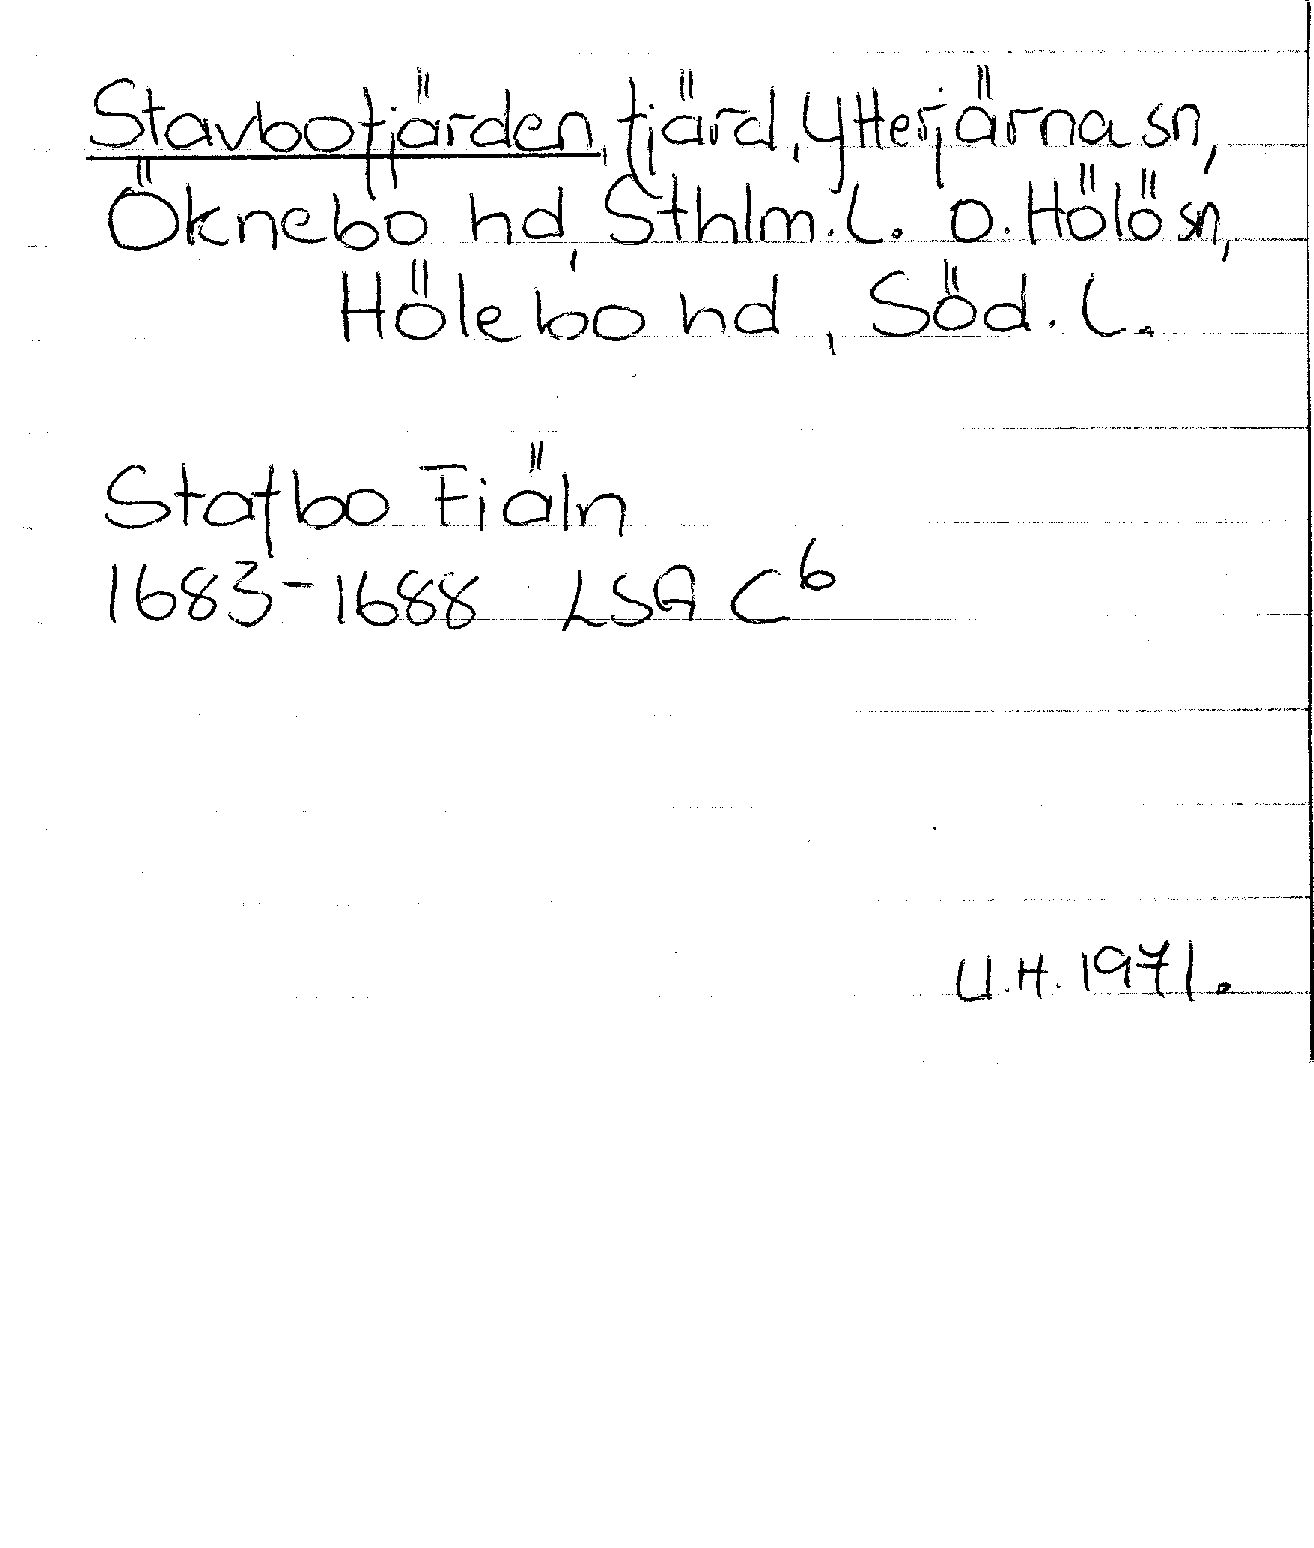 Stavbofjärden, fjärd, Ytterjärna sn,
Öknebo hd, Sthlm. l. o. Hölö sn,
Hölebo hd, Söd. l.
Stafbo Fiäln
1683-1688 LSA C6
U.H. 1971.